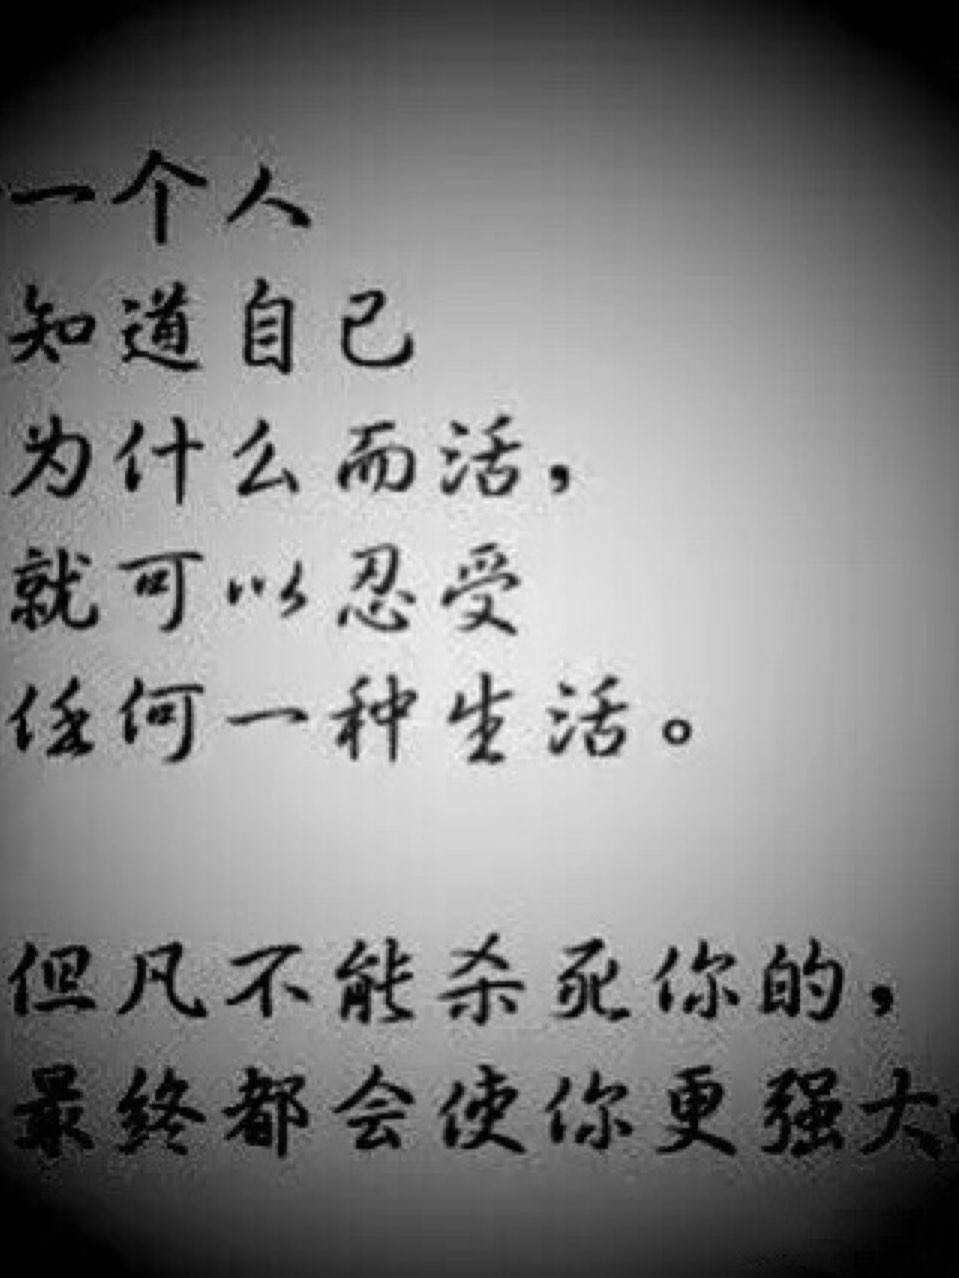 一个人
知道自己
为什么而活，
就可以忍受
任何一种生活。
但凡不能杀死你的，
最终都会使你更强大。